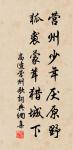 營州少年厭原野
狐裘蒙茸獵城下
高適營州歌詞典網書